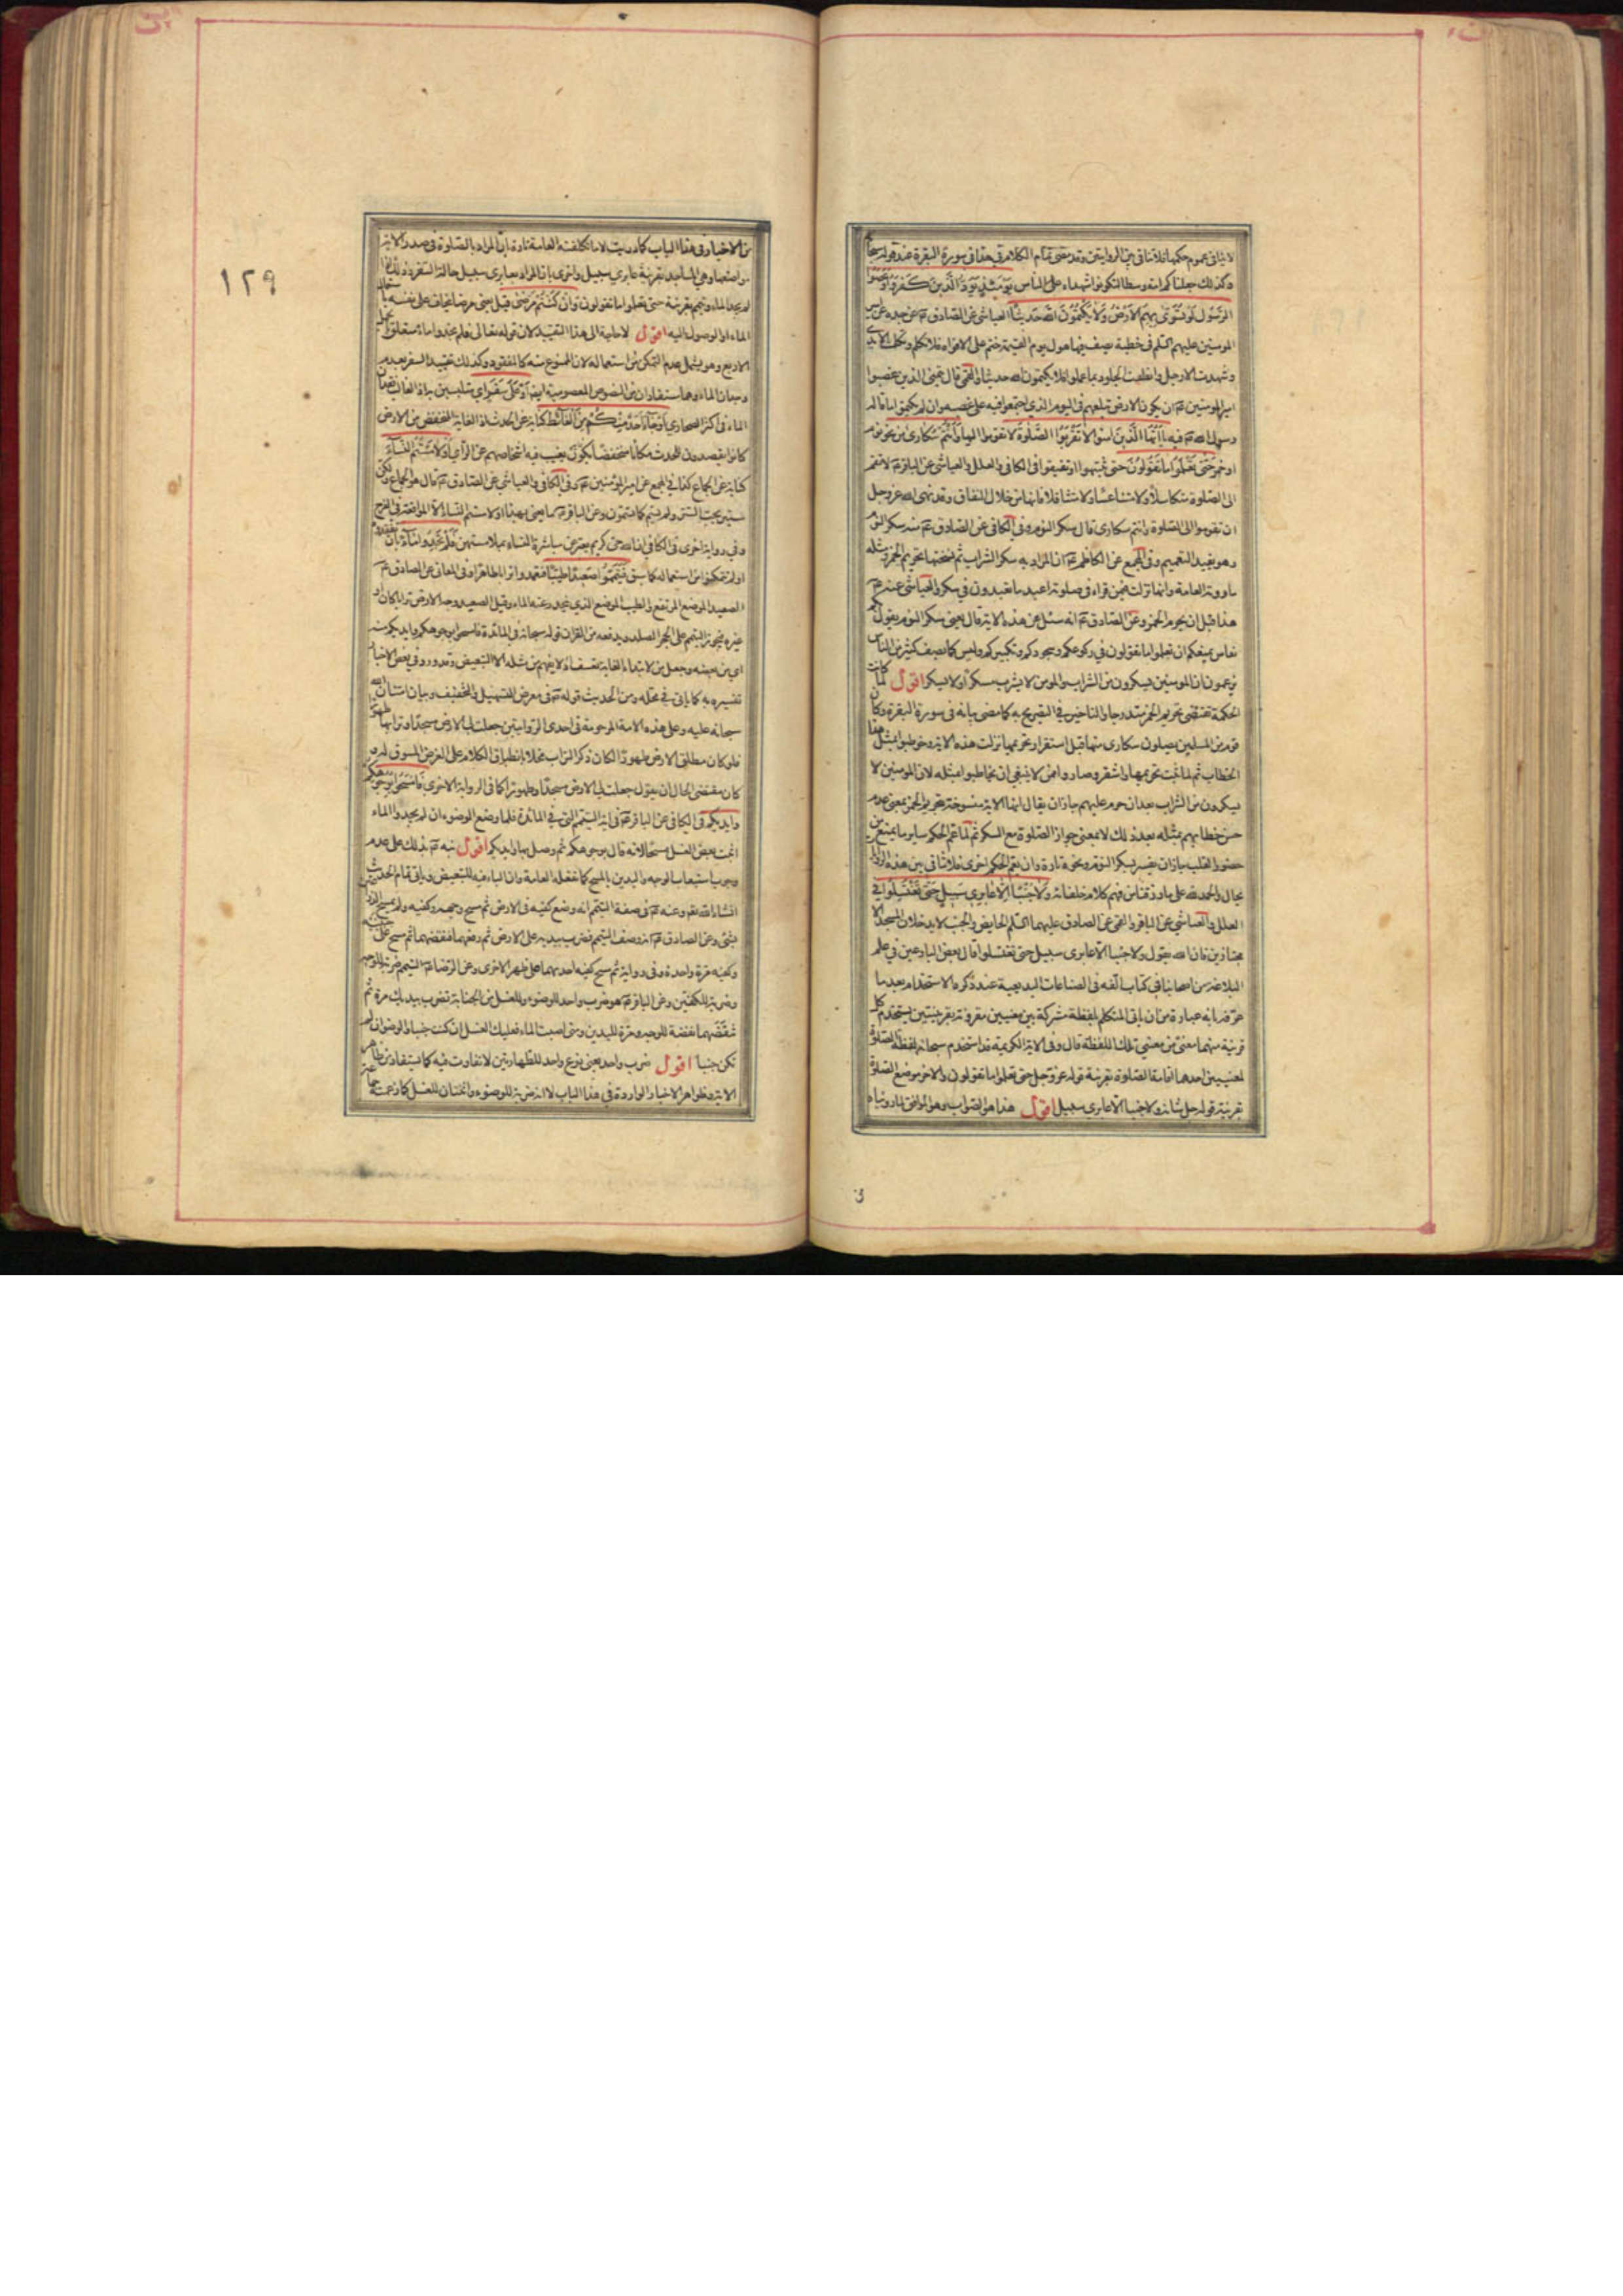 لا ينافي عموم حكمها فلا تنافي بين الروايتين وقد مضى تمام الكلام في هذا في سورة البقرة عند قوله سبحانه
وكذلك جعلناكم امة وسطا لتكونوا شهداء على الناس يَوْمَئِذٍ يَوَدُّ الَّذِينَ كَفَرُوا وَعَصَوُا
الرَّسُولَ لَوْ تُسَوَّىٰ بِهِمُ الْأَرْضُ وَلَا يَكْتُمُونَ اللَّهَ حَدِيثًا العياشي عن الصادق عن جده عن امير
المومنين عليهم السلم في خطبة يصف فيها هول يوم القيمة ختم على الافواه فلا تكلم وتكلمت الايدي
وشهدت الارجل وانطقت الجلود بما عملوا فلا يكتمون الله حديثا والقمي قال يتمنى الذين غصبوا
امير المومنين ان يكون الارض تبلعهم في اليوم الذي اجتمعوا فيه على غصبه وان لم يكتموا ما قاله
رسول الله فيه يَا أَيُّهَا الَّذِينَ آمَنُوا لَا تَقْرَبُوا الصَّلٰوةَ لا تقوموا اليها وَأَنْتُمْ سُكَارَىٰ من نحو نوم
او خمر حَتَّىٰ تَعْلَمُوا مَا تَقُولُونَ حتى تنتبهوا او تفيقوا في الكافي والعلل والعياشي عن الباقر لا تقم
الى الصلوة متكاسلا ولا متناعسا ولا متثاقلا فانها من خلال النفاق وقد نهى الله عز وجل
ان تقوموا الى الصلوة وانتم سكارى قال سكر النوم وفي الكافي عن الصادق منه سكر النوم
وهو يفيد التعميم وفي المجمع عن الكاظم ان المراد به سكر الشراب ثم نسختها تحريم الخمر ومثله
ما روته العامة وانها نزلت فيمن قراء في صلوته اعبد ما تعبدون في سكره والعياشي عنه
هذا قبل ان يحرم الخمر وعن الصادق انه سئل عن هذه الاية قال يعني سكر النوم يقول بكم
نعاس يمنعكم ان تعلموا ما تقولون في ركوعكم وسجودكم وتكبيركم وليس كما يصف كثير من الناس
يزعمون ان المومنين يسكرون من الشراب والمومن لا يشرب مسكرا ولا يسكر اقول لما كانت
الحكمة تقتضي تحريم الخمر متدرجا والتاخير في التصريح به كما مضى بيانه في سورة البقرة وكان
قوم من المسلمين يصلون سكارى منها قبل استقرار تحريمها نزلت هذه الاية وخوطبوا بمثل هذا
الخطاب ثم لما ثبت تحريمها واستقر وصاروا ممن لا ينبغي ان يخاطبوا بمثله لان المومنين لا
يسكرون من الشراب بعد ان حرم عليهم جاز ان يقال انها الاية منسوخة بتحريم الخمر بمعنى عدم
حسن خطابهم بمثله بعد ذلك لا بمعنى جواز الصلوة مع السكر ثم لما عم الحكم ساير ما يمنع من
حضور القلب جاز ان يفسر بسكر النوم ونحوه تارة وان يعم الحكم اخرى فلا تنافي بين هذه الروايات
بحال والحمد لله على ما رزقنا من فهم كلام خلفائه وَلَا جُنُبًا إِلَّا عَابِرِي سَبِيلٍ حَتَّىٰ تَغْتَسِلُوا في
العلل والعياشي عن الباقر والقمي عن الصادق عليهما السلم الحايض والجنب لا يدخلان المسجد الا
مجتازين فان الله يقول ولا جنبا الا عابرى سبيل حتى تغتسلوا قال بعض البارعين في علم
البلاغة من اصحابنا في كتاب الفه في الصناعات البديعية عند ذكره الاستخدام بعد ما
عرفه بانه عبارة من ان ياتي المتكلم بلفظة مشتركة بين معنيين مقرونة بقرينتين يستخدم كل
قرينة منهما معنى من معنيي تلك اللفظة قال وفي الاية الكريمة قد استخدم سبحانه لفظة الصلوة
لمعنيين احدهما اقامة الصلوة بقرينة قوله عز وجل حتى تعلموا ما تقولون والاخر موضع الصلوة
بقرينة قوله جل شانه ولا جنبا الا عابرى سبيل اقول هذا هو الصواب وهو الموافق لما روينا
١٢٩
من الاخبار في هذا الباب كما دريت لا ما تكلفته العامة تارة بان المراد بالصلوة في صدر الاية
مواضعها وهي المساجد بقرينة عابري سبيل واخرى بان المراد بعابرى سبيل حالة السفر وذلك اذا
لم يجد الماء وتيمم بقرينة حتى تعلموا ما تقولون وَإِنْ كُنْتُمْ مَرْضَىٰ قيل يعني مرضا يخاف على نفسه باستعمال
الماء او الوصول اليه اقول لا حاجة الى هذا التقييد لان قوله تعالى فلم تجدوا ماء متعلق بالجمل
الاربع وهو يشمل عدم التمكن من استعماله لان الممنوع منه كالمفقود وكذلك تقييد السفر بعدم
وجدان الماء وهما مستفادان من النصوص المعصومية ايضا أَوْ عَلَىٰ سَفَرٍ اي متلبسين به اذ الغالب فقدان
الماء في اكثر الصحاري أَوْ جَاءَ أَحَدٌ مِنْكُمْ مِنَ الْغَائِطِ كناية عن الحدث اذ الغايط المنخفض من الارض
كانوا يقصدون للحدث مكانا منخفضا يكون يغيب فيه اشخاصهم عن الرائي أَوْ لَامَسْتُمُ النِّسَاءَ
كناية عن الجماع كذا في المجمع عن امير المؤمنين وفي الكافي والعياشي عن الصادق قال هو الجماع ولكن الله
ستير يحب الستر ولم يسم كما تسمون وعن الباقر ما يعني بهذا او لامستم النساء الا المواقعة في الفرج
وفي رواية اخرى في الكافي ان الله حيي كريم يعبر عن مباشرة النساء بملامستهن فَلَمْ تَجِدُوا مَاءً بان تفقدوه
او لم تمكنوا من استعماله كما سبق فَتَيَمَّمُوا صَعِيدًا طَيِّبًا فتعمدوا ترابا طاهرا وفي المعاني عن الصادق
الصعيد الموضع المرتفع والطيب الموضع الذي ينحدر عنه الماء وقيل الصعيد وجه الارض ترابا كان او
غيره فيجوز التيمم على الحجر الصلد ويدفعه من القران قوله سبحانه في المائدة فامسحوا بوجوهكم وايديكم منه
اي من بعضه وجعل من لابتداء الغاية تعسف اذ لا يفهم من مثله الا التبعيض وقد ورد في بعض الاخبار
تفسيره به كما ياتي في محله ومن الحديث قوله في معرض التسهيل والتخفيف وبيان امتنان الله
سبحانه عليه وعلى هذه الامة المرحومة في احدى الروايتين جعلت لي الارض مسجدا وترابها طهورا
فلو كان مطلق الارض طهورا لكان ذكر التراب مخلا بانطباق الكلام على الغرض المسوق له
كان مقتضى الحال ان يقول جعلت لي الارض مسجدا وطهورا كما في الرواية الاخرى فَامْسَحُوا بِوُجُوهِكُمْ
وَأَيْدِيكُمْ في الكافي عن الباقر في اية التيمم التي في المائدة فلما وضع الوضوء ان لم يجدوا الماء
اثبت بعض الغسل مسحا لانه قال بوجوهكم ثم وصل بها وايديكم اقول نبه بذلك على عدم
وجوب استيعاب الوجه واليدين بالمسح كما فعله العامة وان الباء فيه للتبعيض وياتي تمام الحديث
انشاء الله تعم وعنه في صفة التيمم انه وضع كفيه في الارض ثم مسح وجهه وكفيه ولم يمسح الذراعين
بشئ وعن الصادق انه وصف التيمم فضرب بيديه على الارض ثم رفعهما فنفضهما ثم مسح على جبينيه
وكفيه مرة واحدة وفي رواية ثم مسح كفيه احدهما على ظهر الاخرى وعن الرضا التيمم ضربة للوجه
وضربة للكفين وعن الباقر هو ضرب واحد للوضوء وللغسل من الجنابة تضرب بيديك مرة ثم
تنفضهما نفضة للوجه ومرة لليدين ومتى اصبت الماء فعليك الغسل ان كنت جنبا والوضوء ان لم
تكن جنبا اقول ضرب واحد يعني نوع واحد للطهارتين لا تفاوت فيه كما يستفاد من ظاهر
الاية وظواهر الاخبار الواردة في هذا الباب لا انه ضربة للوضوء واثنتان للغسل كما زعمته